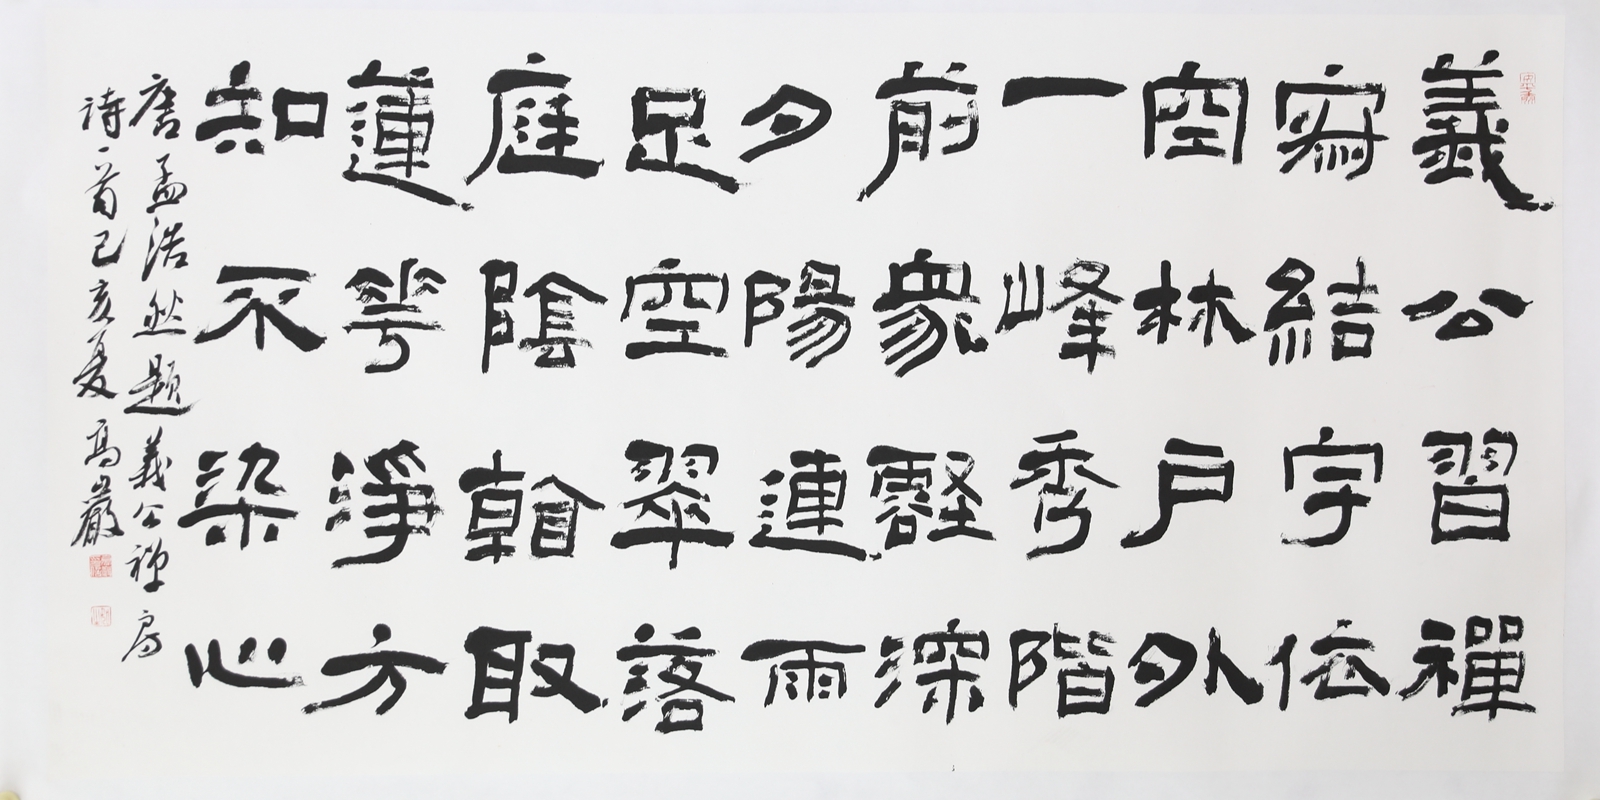 義公習禪
寂結宇依
空林戶外
一峰秀階
前眾壑深
夕陽連雨
足空翠落
庭陰看取
蓮花淨方
知不染心
唐孟浩然題義公禪房
詩一首己亥夏高巖